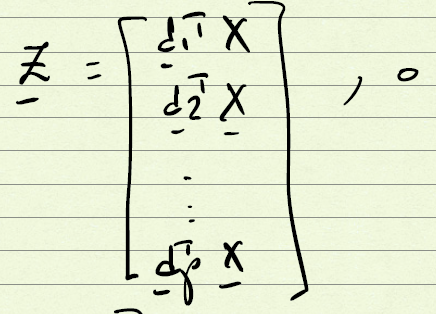 Z = [ d₁ᵀ X
d₂ᵀ X
⋮
dₚᵀ X ] , 0